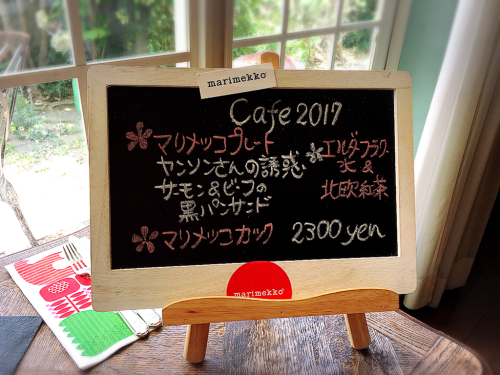 marimekko
Cafe 2017
マリメッコプレート
ヤンソンさんの誘惑
サーモン&ビーフの
黒パンサンド
エルダーフラワー
水 &
北欧紅茶
マリメッコカップ 2300 yen
marimekko